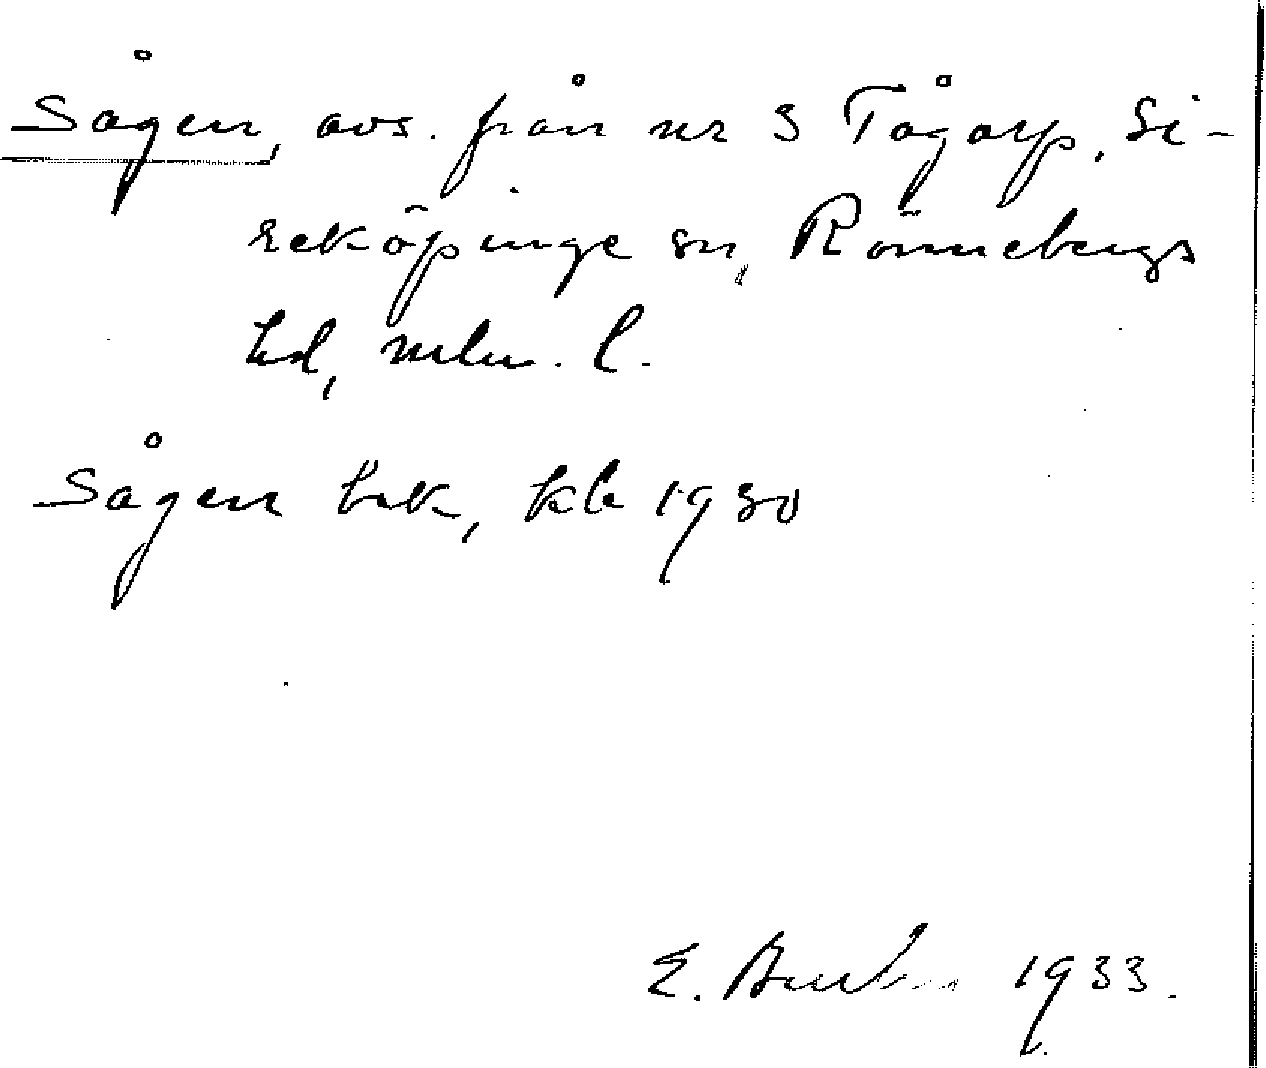 Sågen, avs. från nr 3 Tågarp, Si-
reköpinge sn, Rönnebergs
hd, mlm. l.
Sågen bek, kb 1930
E. 1933.